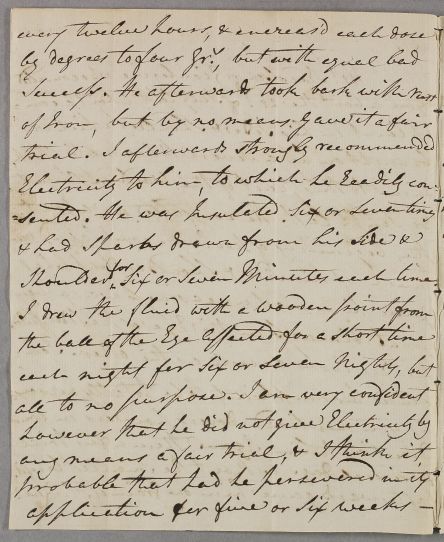 every twelve hours, & encreas'd each dose
by degrees to four Gr.s, but with equal bad
Success. He afterwards took bark with rust
of Iron, but by no means gave it a fair
trial. I afterwards strongly recommended
Electricity to him, to which he readily con-
=sented. He was Insulated Six or Seven times
& had Sparks drawn from his Side &
Shoulder for Six or Seven Minutes each time
I drew the fluid with a wooden point from
the ball of the Eye affected for a short time
each night for Six or Seven Nights, but
all to no purpose. I am very confident
however that he did not give Electricity by
any means a fair trial, & I think it
probable that had he persevered in its
application for five or Six weeks —